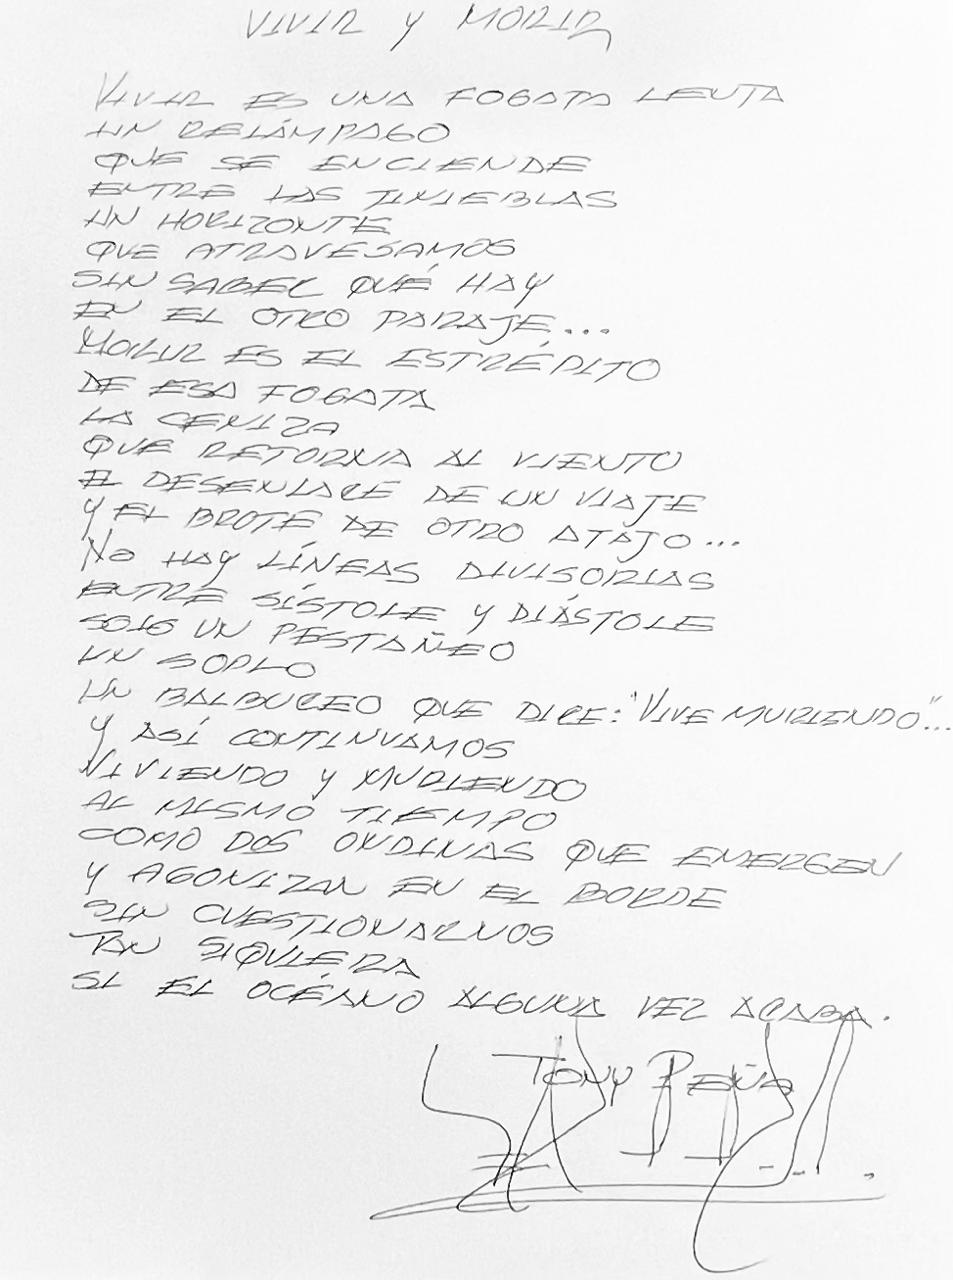 VIVIR Y MORIR
VIVIR ES UNA FOGATA LENTA
UN RELÁMPAGO
QUE SE ENCIENDE
ENTRE LAS TINIEBLAS
UN HORIZONTE
QUE ATRAVESAMOS
SIN SABER QUÉ HAY
EN EL OTRO PARAJE...
MORIR ES EL ESTRÉPITO
DE ESA FOGATA
LA CENIZA
QUE RETORNA AL VIENTO
EL DESENLACE DE UN VIAJE
Y EL BROTE DE OTRO ATAJO...
NO HAY LÍNEAS DIVISORIAS
ENTRE SÍSTOLE Y DIÁSTOLE
SOLO UN PESTAÑEO
UN SOPLO
UN BALBUCEO QUE DICE: "VIVE MURIENDO"...
Y ASÍ CONTINUAMOS
VIVIENDO Y MURIENDO
AL MISMO TIEMPO
COMO DOS ONDINAS QUE EMERGEN
Y AGONIZAN EN EL BORDE
SIN CUESTIONARNOS
TAN SIQUIERA
SI EL OCÉANO ALGUNA VEZ ACABA.
TONY PEÑA